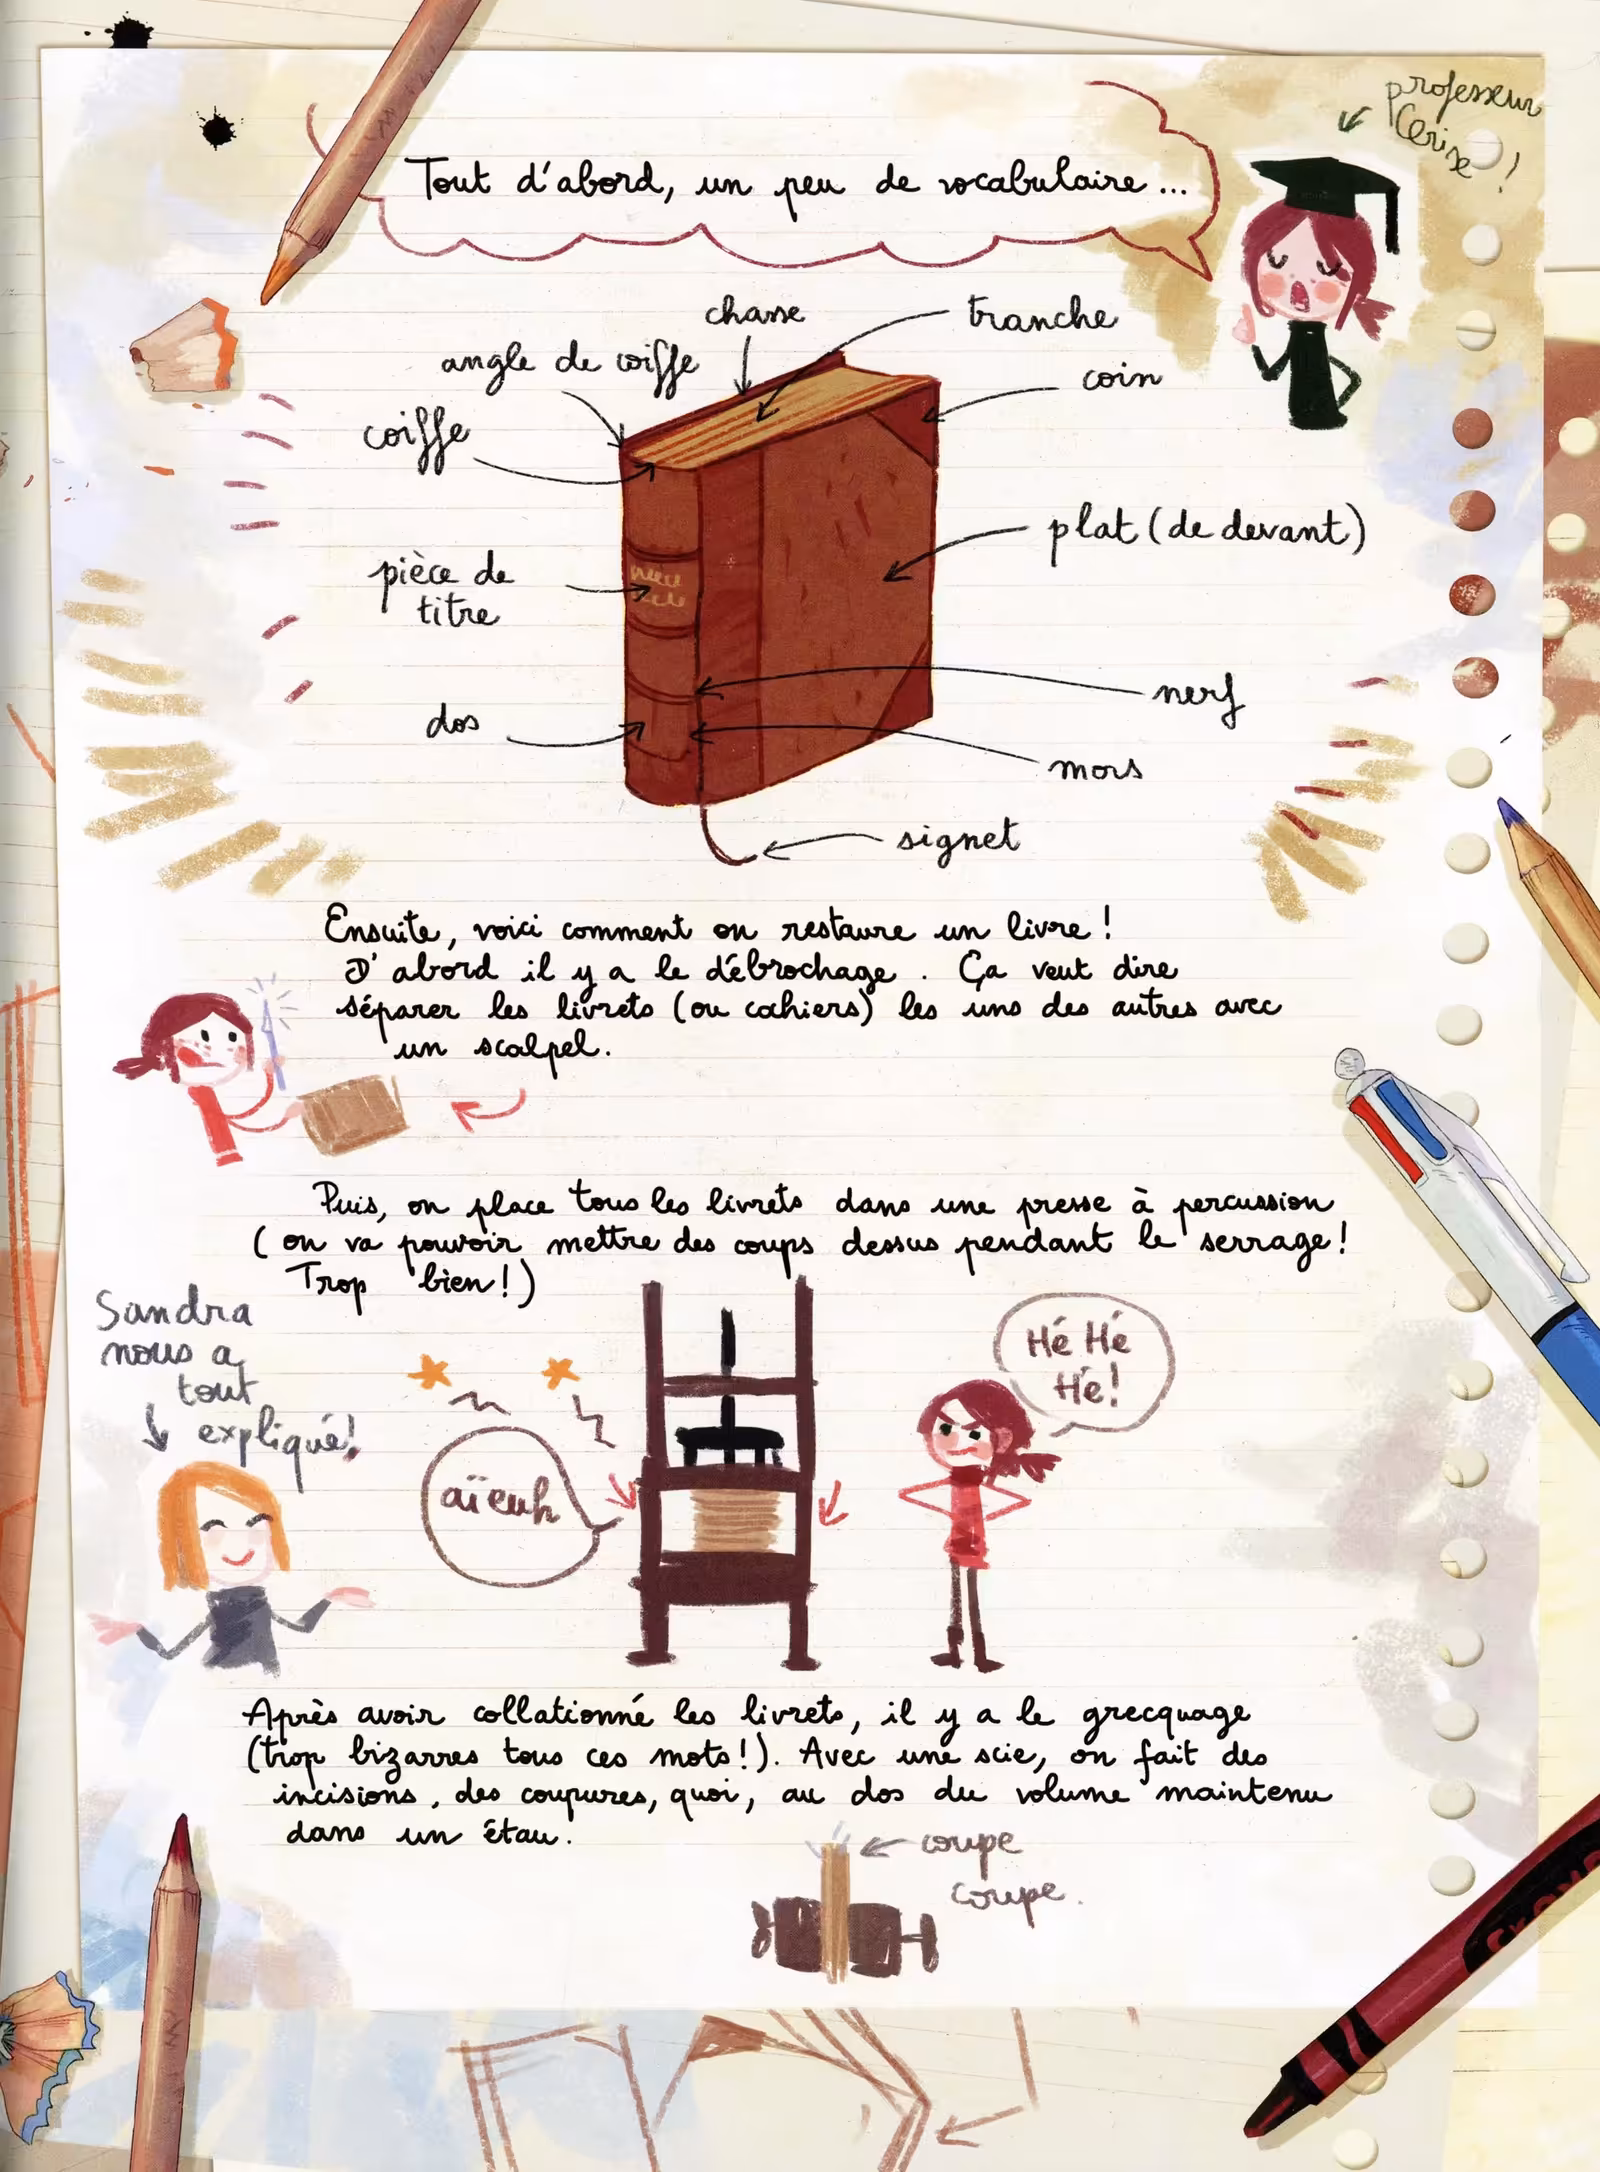 professeur
Cerise !
Tout d'abord, un peu de vocabulaire...
chasse
tranche
angle de coiffe
coin
coiffe
plat (de devant)
pièce de
titre
nerf
dos
mors
signet
Ensuite, voici comment on restaure un livre !
D'abord il y a le débrochage. Ça veut dire
séparer les livrets (ou cahiers) les uns des autres avec
un scalpel.
Puis, on place tous les livrets dans une presse à percussion
(on va pouvoir mettre des coups dessus pendant le serrage !
Trop bien !)
Sandra
nous a
tout
expliqué !
Hé Hé
Hé !
aïeuh
Après avoir collationné les livrets, il y a le grecquage
(trop bizarres tous ces mots !). Avec une scie, on fait des
incisions, des coupures, quoi, au dos du volume maintenu
dans un étau.
coupe
coupe.